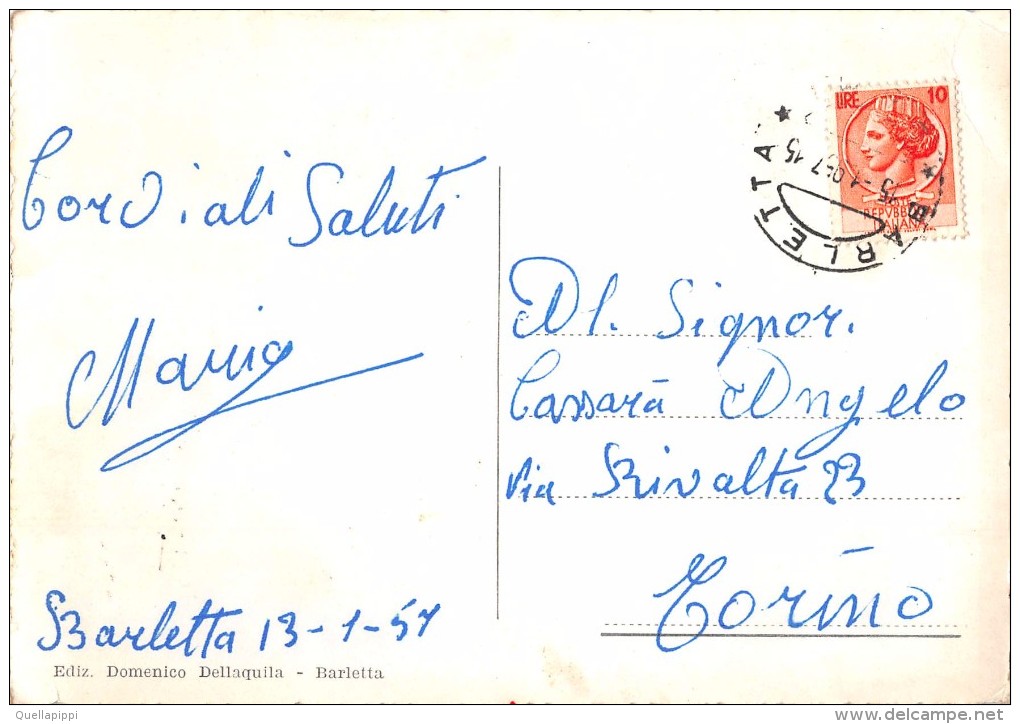 Cordiali Saluti
Maria
Barletta 13-1-57
Ediz. Domenico Dellaquila - Barletta
LIRE 10
BARLETTA
Al. Signor.
Cassarà Angelo
Via Rivalta 23
Torino
Quellapippi
delcampe.net